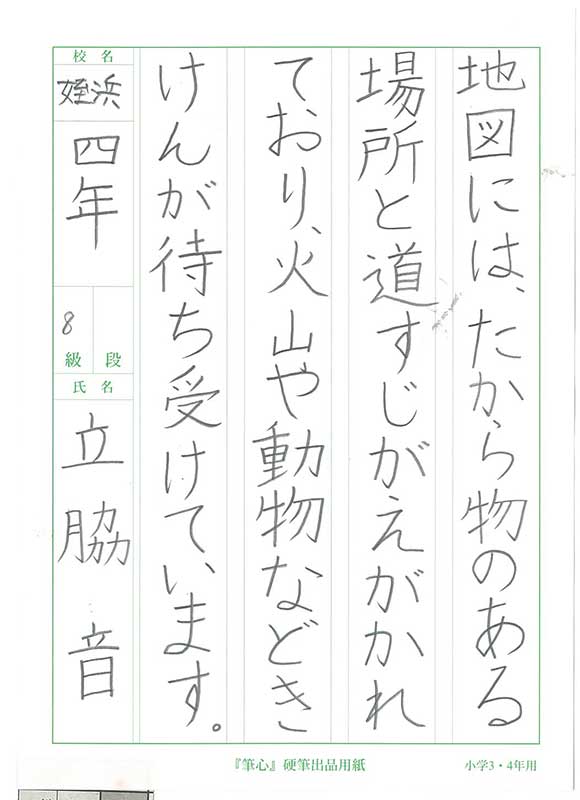 地図には、たから物のある
場所と道すじがえがかれ
ており、火山や動物などき
けんが待ち受けています。
校名
姪浜
四年
8
級 段
氏名
立脇 音
『筆心』硬筆出品用紙
小学3・4年用